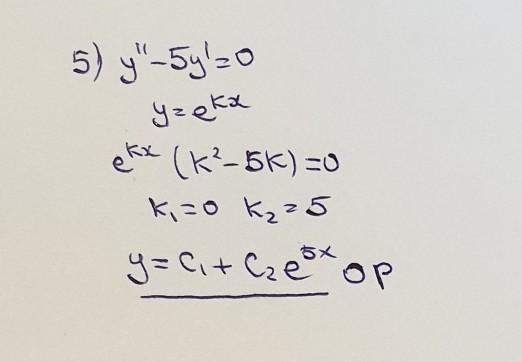 5) y''-5y'=0
y=e^{kx}
e^{kx} (k²-5k)=0
k₁=0 k₂=5
y=C₁+C₂e^{5x} ор